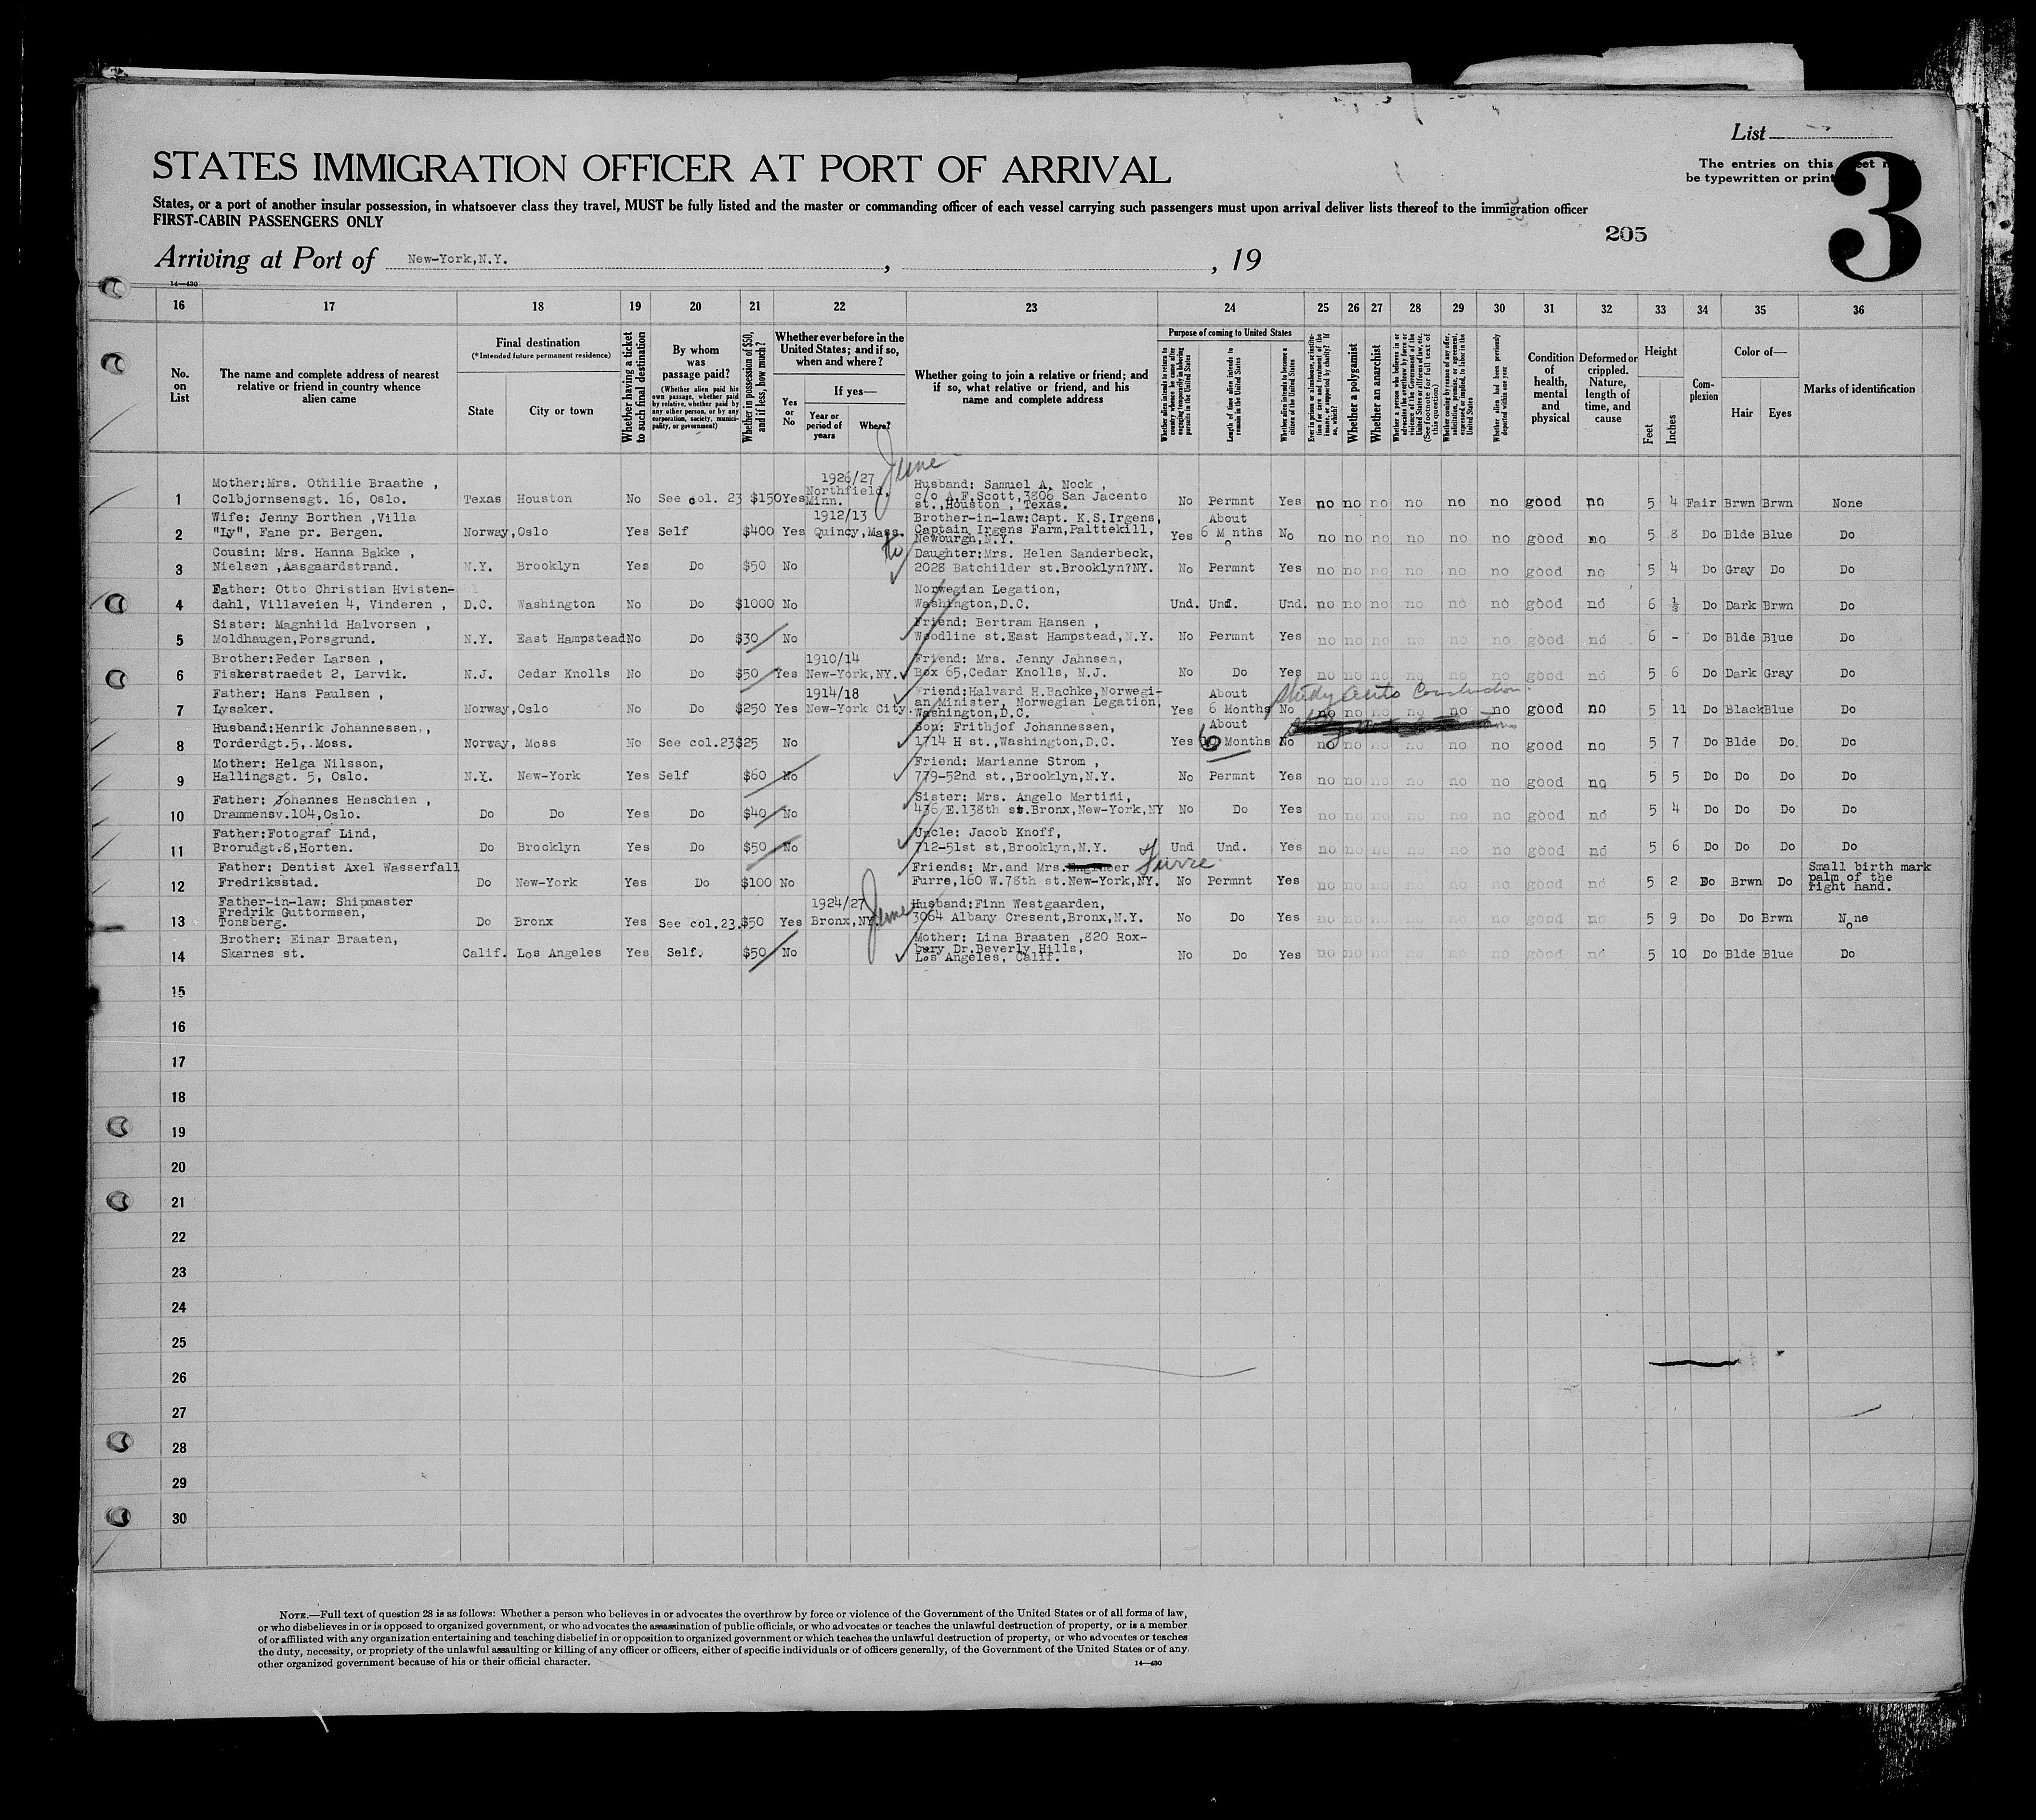 List
STATES IMMIGRATION OFFICER AT PORT OF ARRIVAL
The entries on this
be typewritten or print
3
States, or a port of another insular possession, in whatsoever class they travel, MUST be fully listed and the master or commanding officer of each vessel carrying such passengers must upon arrival deliver lists thereof to the immigration officer
FIRST-CABIN PASSENGERS ONLY
205
Arriving at Port of New-York,N.Y. , , 19
14—430
16 17 18 19 20 21 22 23 24 25 26 27 28 29 30 31 32 33 34 35 36
No. on List
The name and complete address of nearest relative or friend in country whence alien came
Final destination
(*Intended future permanent residence)
State
City or town
Whether having a ticket to such final destination
By whom was passage paid?
(Whether alien paid his own passage, whether paid by relative, whether paid by any other person, or by any corporation, society, municipality, or government)
Whether in possession of $50, and if less, how much?
Whether ever before in the United States; and if so, when and where?
Yes or No
If yes—
Year or period of years
Where?
Whether going to join a relative or friend; and if so, what relative or friend, and his name and complete address
Purpose of coming to United States
Whether alien intends to return to country whence he came after engaging temporarily in laboring pursuits in the United States
Length of time alien intends to remain in the United States
Whether alien intends to become a citizen of the United States
Ever in prison or almshouse, or institution for care and treatment of the insane, or supported by charity? If so, which?
Whether a polygamist
Whether an anarchist
Whether a person who believes in or advocates the overthrow by force or violence of the Government of the United States or all forms of law, etc. (See footnote for full text of this question)
Whether coming by reason of any offer, solicitation, promise, or agreement, expressed or implied, to labor in the United States
Whether alien had been previously deported within one year
Condition of health, mental and physical
Deformed or crippled. Nature, length of time, and cause
Height
Feet
Inches
Complexion
Color of—
Hair
Eyes
Marks of identification
1 Mother:Mrs. Othilie Braathe , Colbjornsensgt. 16, Oslo. Texas Houston No See col. 23 $150 Yes 1926/27 Northfield, Minn. June Husband: Samuel A. Nock , c/o A.F.Scott,3806 San Jacento st.,Houston , Texas. No Permnt Yes no no no no no no good no 5 4 Fair Brwn Brwn None
2 Wife: Jenny Borthen ,Villa "Ly", Fane pr. Bergen. Norway,Oslo Yes Self $400 Yes 1912/13 Quincy,Mass. Brother-in-law:Capt. K.S.Irgens, Captain Irgens Farm,Palttekill, Newburgh,N.Y. Yes About 6 Mnths No no no no no no no good no 5 8 Do Blde Blue Do
3 Cousin: Mrs. Hanna Bakke , Nielsen ,Aasgaardstrand. N.Y. Brooklyn Yes Do $50 No Daughter:Mrs. Helen Sanderbeck, 2028 Batchilder st.Brooklyn?NY. No Permnt Yes no no no no no no good no 5 4 Do Gray Do Do
4 Father: Otto Christian Hvistendahl, Villaveien 4, Vinderen , D.C. Washington No Do $1000 No Norwegian Legation, Washington,D.C. Und. Und. Und. no no no no no no good no 6 ½ Do Dark Brwn Do
5 Sister: Magnhild Halvorsen , Moldhaugen,Porsgrund. N.Y. East Hampstead No Do $30 No Friend: Bertram Hansen , Woodline st.East Hampstead,N.Y. No Permnt Yes no no no no no no good no 6 - Do Blde Blue Do
6 Brother:Peder Larsen , Fiskerstraedet 2, Larvik. N.J. Cedar Knolls No Do $50 Yes 1910/14 New-York,NY. Friend: Mrs. Jenny Jahnsen, Box 65,Cedar Knolls, N.J. No Do Yes no no no no no no good no 5 6 Do Dark Gray Do
7 Father: Hans Paulsen , Lysaker. Norway,Oslo No Do $250 Yes 1914/18 New-York City. Friend:Halvard H.Bachke,Norwegian Minister, Norwegian Legation, Washington,D.C. Yes About 6 Months No Study Auto Construction. no no no no no no good no 5 11 Do Black Blue Do
8 Husband:Henrik Johannessen., Torderdgt.5,.Moss. Norway, Moss No See col.23 $25 No Son: Frithjof Johannessen, 1714 H st.,Washington,D.C. Yes About 6 Months No no no no no no no good no 5 7 Do Blde Do. Do
9 Mother: Helga Nilsson, Hallingsgt. 5, Oslo. N.Y. New-York Yes Self $60 No Friend: Marianne Strom , 779-52nd st.,Brooklyn,N.Y. No Permnt Yes no no no no no no good no 5 5 Do Do Do Do
10 Father: Johannes Henschien , Drammensv.104,Oslo. Do Do Yes Do $40 No Sister: Mrs. Angelo Martini, 436 E.138th st.Bronx,New-York,NY No Do Yes no no no no no no good no 5 4 Do Do Do Do
11 Father:Fotograf Lind, Brorudgt.8,Horten. Do Brooklyn Yes Do $50 No Uncle: Jacob Knoff, 712-51st st,Brooklyn,N.Y. Und Und. Yes no no no no no no good no 5 6 Do Do Do Do
12 Father: Dentist Axel Wasserfall Fredriksstad. Do New-York Yes Do $100 No Friends: Mr.and Mrs. Engineer Furre Furre,160 W.78th st.New-York,NY. No Permnt Yes no no no no no no good no 5 2 Do Brwn Do Small birth mark palm of the right hand.
13 Father-in-law: Shipmaster Fredrik Guttormsen, Tonsberg. Do Bronx Yes See col.23. $50 Yes 1924/27 Bronx,NY. June Husband:Finn Westgaarden, 3064 Albany Cresent,Bronx,N.Y. No Do Yes no no no no no no good no 5 9 Do Do Brwn None
14 Brother: Einar Braaten, Skarnes st. Calif. Los Angeles Yes Self. $50 No Mother: Lina Braaten ,820 Roxbury Dr.Beverly Hills, Los Angeles, Calif. No Do Yes no no no no no no good no 5 10 Do Blde Blue Do
15
16
17
18
19
20
21
22
23
24
25
26
27
28
29
30
NOTE.—Full text of question 28 is as follows: Whether a person who believes in or advocates the overthrow by force or violence of the Government of the United States or of all forms of law,
or who disbelieves in or is opposed to organized government, or who advocates the assassination of public officials, or who advocates or teaches the unlawful destruction of property, or is a member
of or affiliated with any organization entertaining and teaching disbelief in or opposition to organized government or which teaches the unlawful destruction of property, or who advocates or teaches
the duty, necessity, or propriety of the unlawful assaulting or killing of any officer or officers, either of specific individuals or of officers generally, of the Government of the United States or of any
other organized government because of his or their official character.
14—430